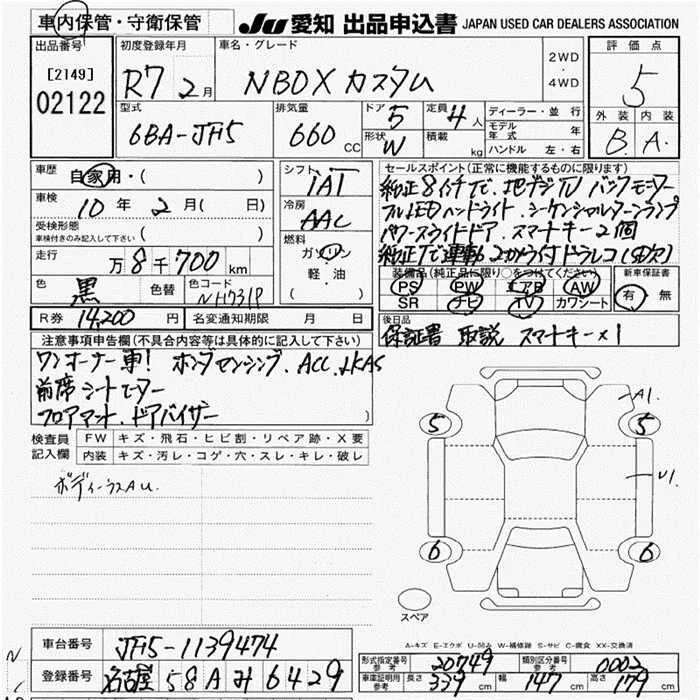 車内保管・守衛保管 JU 愛知 出品申込書 JAPAN USED CAR DEALERS ASSOCIATION
出品番号 初度登録年月 車名・グレード 2WD ・ 4WD 評価点
[2149] R7 2月 NBOX カスタム 5
02122
型式 排気量 ドア 5 定員 4人 ディーラー・並行 外装 内装
6BA-JH5 660 CC 形状 W 積載 kg モデル年式 年 B. A.
ハンドル 左・右
車歴 自家用・( ) シフト IAT セールスポイント(正常に機能するものに限ります)
車検 10年 2月( 日) 冷房 AAC 純正8インチナビ.地デジTV バックモニター
フルLEDヘッドライト.シーケンシャルターンランプ
受検形態 パワースライドドア.スマートキー2個
車検付きのみ記入して下さい ( ) 燃料 ガソリン 軽・油 ( )
走行 万8千700km 装備品(純正品に限り○をつけてください) 新車保証書
色 黒 色替 色コード NH731P PS PW エアB AW 有・無
SR ナビ TV カワシート
R券 14,200円 名変通知期限 月 日 後日品
保証書 取説 スマートキー×1
注意事項申告欄(不具合内容等は具体的に記入して下さい)
ワンオーナー車! ホンダセンシング.ACC.LKAS
前席シートヒーター
フロアマット.ドアバイザー
検査員記入欄 FW キズ・飛石・ヒビ割・リペア跡・X要
内装 キズ・汚レ・コゲ・穴・スレ・キレ・破レ
A1.
5 5
U1.
6 6
スペア
A-キズ E-エクボ U-凹み W-補修跡 S-サビ C-腐食 XX-交換済
車台番号 JH5-1139474
登録番号 名古屋 58A み 6429
形式指定番号 参考 20749 類別区分番号 参考 0002
車庫証明用 参考 長さ 339cm 幅 147cm 高さ 179cm